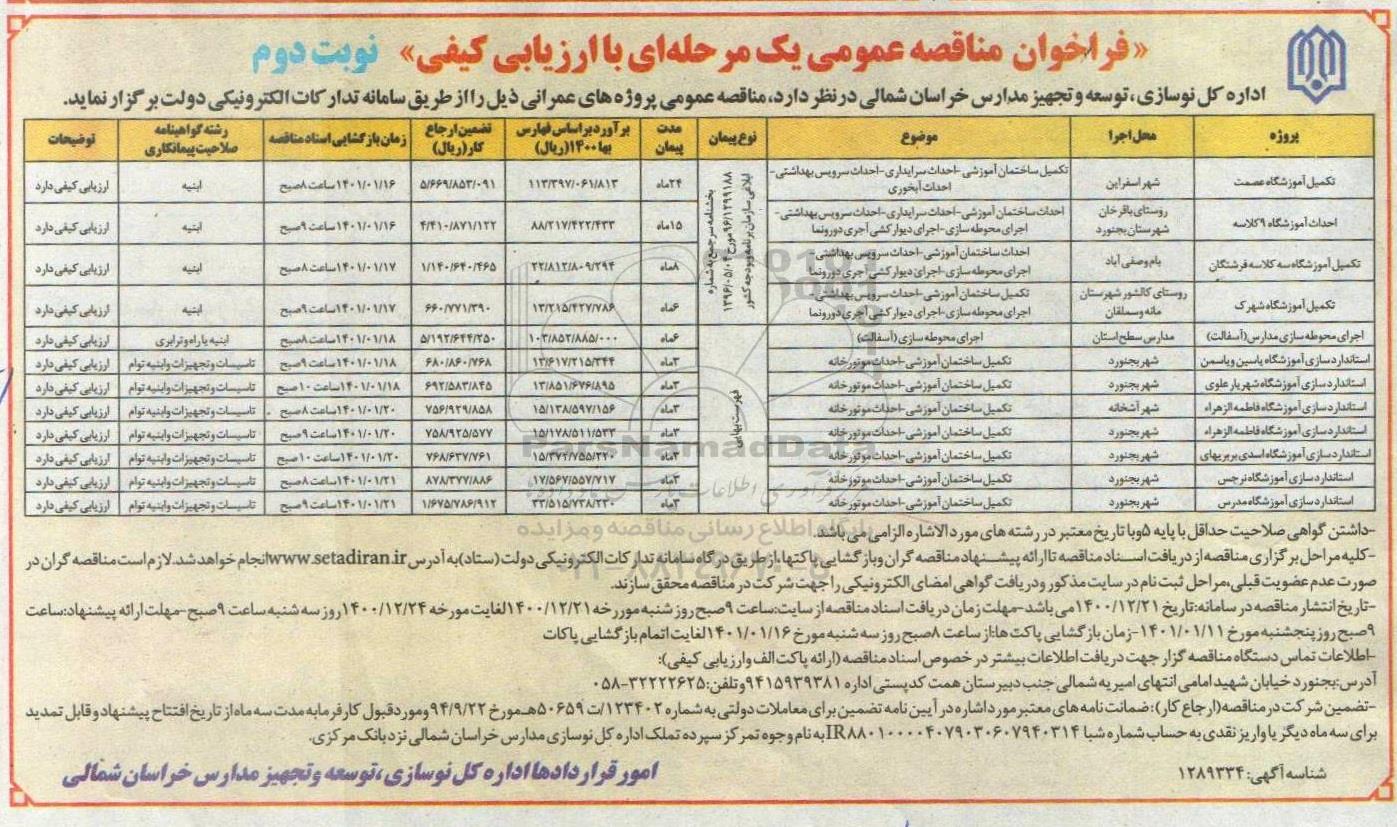 «فراخوان مناقصه عمومی یک مرحله‌ای با ارزیابی کیفی» نوبت دوم
اداره کل نوسازی، توسعه و تجهیز مدارس خراسان شمالی در نظر دارد، مناقصه عمومی پروژه های عمرانی ذیل را از طریق سامانه تدارکات الکترونیکی دولت برگزار نماید.
پروژه محل اجرا موضوع نوع پیمان مدت پیمان برآورد براساس فهارس بها ۱۴۰۰(ریال) تضمین ارجاع کار(ریال) زمان بازگشایی اسناد مناقصه رشته گواهینامه صلاحیت پیمانکاری توضیحات
تکمیل آموزشگاه عصمت شهر اسفراین تکمیل ساختمان آموزشی-احداث سرایداری-احداث سرویس بهداشتی-احداث آبخوری ۲۴ماه ۱۱۳/۳۹۷/۰۶۱/۸۱۳ ۵/۶۶۹/۸۵۳/۰۹۱ ۱۴۰۱/۰۱/۱۶ساعت ۸صبح ابنیه ارزیابی کیفی دارد
احداث آموزشگاه ۹کلاسه روستای باقرخان شهرستان بجنورد احداث ساختمان آموزشی-احداث سرایداری-احداث سرویس بهداشتی-اجرای محوطه سازی-اجرای دیوارکشی آجری دورونما ۱۵ماه ۸۸/۲۱۷/۴۲۲/۴۳۳ ۴/۴۱۰/۸۷۱/۱۲۲ ۱۴۰۱/۰۱/۱۶ساعت ۹صبح ابنیه ارزیابی کیفی دارد
تکمیل آموزشگاه سه کلاسه فرشتگان بام وصفی آباد احداث ساختمان آموزشی-احداث سرویس بهداشتی-اجرای محوطه سازی-اجرای دیوارکشی آجری دورونما ۸ماه ۲۲/۸۱۲/۸۰۹/۲۹۴ ۱/۱۴۰/۶۴۰/۴۶۵ ۱۴۰۱/۰۱/۱۷ساعت ۸صبح ابنیه ارزیابی کیفی دارد
تکمیل آموزشگاه شهرک روستای کالشور شهرستان مانه وسملقان تکمیل ساختمان آموزشی-احداث سرویس بهداشتی-اجرای محوطه سازی-اجرای دیوارکشی آجری دورونما ۶ماه ۱۳/۲۱۵/۴۲۷/۷۸۶ ۶۶۰/۷۷۱/۳۹۰ ۱۴۰۱/۰۱/۱۷ساعت ۹صبح ابنیه ارزیابی کیفی دارد
بخشنامه سرجمع به شماره ۹۶/۱۲۹۹۱۸۸ مورخ ۱۳۹۶/۰۵/۰۴ ابلاغی سازمان برنامه وبودجه کشور
اجرای محوطه سازی مدارس(آسفالت) مدارس سطح استان اجرای محوطه سازی (آسفالت) ۶ماه ۱۰۳/۸۵۲/۸۸۵/۰۰۰ ۵/۱۹۲/۶۴۴/۲۵۰ ۱۴۰۱/۰۱/۱۸ساعت ۸صبح ابنیه یا راه وترابری ارزیابی کیفی دارد
استانداردسازی آموزشگاه یاسین ویاسمن شهر بجنورد تکمیل ساختمان آموزشی-احداث موتورخانه ۳ماه ۱۳/۶۱۷/۲۱۵/۳۴۴ ۶۸۰/۸۶۰/۷۶۸ ۱۴۰۱/۰۱/۱۸ساعت ۹صبح تاسیسات وتجهیزات وابنیه توام ارزیابی کیفی دارد
استانداردسازی آموزشگاه شهریار علوی شهر بجنورد تکمیل ساختمان آموزشی-احداث موتورخانه ۳ماه ۱۳/۸۵۱/۶۷۶/۸۹۵ ۶۹۲/۵۸۳/۸۴۵ ۱۴۰۱/۰۱/۱۸ساعت ۱۰صبح تاسیسات وتجهیزات وابنیه توام ارزیابی کیفی دارد
استانداردسازی آموزشگاه فاطمه الزهراء شهر آشخانه تکمیل ساختمان آموزشی-احداث موتورخانه ۳ماه ۱۵/۱۳۸/۵۹۷/۱۵۶ ۷۵۶/۹۲۹/۸۵۸ ۱۴۰۱/۰۱/۲۰ساعت ۸صبح تاسیسات وتجهیزات وابنیه توام ارزیابی کیفی دارد
استانداردسازی آموزشگاه فاطمه الزهراء شهر بجنورد تکمیل ساختمان آموزشی-احداث موتورخانه ۳ماه ۱۵/۱۷۸/۵۱۱/۵۳۳ ۷۵۸/۹۲۵/۵۷۷ ۱۴۰۱/۰۱/۲۰ساعت ۹صبح تاسیسات وتجهیزات وابنیه توام ارزیابی کیفی دارد
استانداردسازی آموزشگاه اسدی بربریهای شهر بجنورد تکمیل ساختمان آموزشی-احداث موتورخانه ۳ماه ۱۵/۳۷۲/۷۵۵/۲۲۰ ۷۶۸/۶۳۷/۷۶۱ ۱۴۰۱/۰۱/۲۰ساعت ۱۰صبح تاسیسات وتجهیزات وابنیه توام ارزیابی کیفی دارد
استانداردسازی آموزشگاه نرجس شهر بجنورد تکمیل ساختمان آموزشی-احداث موتورخانه ۳ماه ۱۷/۵۶۷/۵۵۷/۷۱۷ ۸۷۸/۳۷۷/۸۸۶ ۱۴۰۱/۰۱/۲۱ساعت ۸صبح تاسیسات وتجهیزات وابنیه توام ارزیابی کیفی دارد
استانداردسازی آموزشگاه مدرس شهر بجنورد تکمیل ساختمان آموزشی-احداث موتورخانه ۳ماه ۳۳/۵۱۵/۷۳۸/۲۳۰ ۱/۶۷۵/۷۸۶/۹۱۲ ۱۴۰۱/۰۱/۲۱ساعت ۹صبح تاسیسات وتجهیزات وابنیه توام ارزیابی کیفی دارد
فهرست بهایی
-داشتن گواهی صلاحیت حداقل با پایه ۵وبا تاریخ معتبر در رشته های مورد الاشاره الزامی می باشد.
-کلیه مراحل برگزاری مناقصه از دریافت اسناد مناقصه تا ارائه پیشنهاد مناقصه گران وبازگشایی پاکتها، از طریق درگاه سامانه تدارکات الکترونیکی دولت (ستاد) به آدرس www.setadiran.ir انجام خواهد شد. لازم است مناقصه گران در
صورت عدم عضویت قبلی، مراحل ثبت نام در سایت مذکور ودریافت گواهی امضای الکترونیکی را جهت شرکت در مناقصه محقق سازند.
-تاریخ انتشار مناقصه در سامانه: تاریخ ۱۴۰۰/۱۲/۲۱می باشد-مهلت زمان دریافت اسناد مناقصه از سایت: ساعت ۹صبح روز شنبه موررخه ۱۴۰۰/۱۲/۲۱ لغایت مورخه ۱۴۰۰/۱۲/۲۴ روز سه شنبه ساعت ۹صبح-مهلت ارائه پیشنهاد: ساعت
۹صبح روز پنجشنبه مورخ ۱۴۰۱/۰۱/۱۱-زمان بازگشایی پاکت ها: از ساعت ۸صبح روز سه شنبه مورخ ۱۴۰۱/۰۱/۱۶ لغایت اتمام بازگشایی پاکات
-اطلاعات تماس دستگاه مناقصه گزار جهت دریافت اطلاعات بیشتر در خصوص اسناد مناقصه (ارائه پاکت الف وارزیابی کیفی):
آدرس: بجنورد خیابان شهید امامی انتهای امیریه شمالی جنب دبیرستان همت کدپستی اداره ۹۴۱۵۹۳۹۳۸۱ وتلفن: ۳۲۲۲۲۶۲۵-۰۵۸
-تضمین شرکت در مناقصه (ارجاع کار): ضمانت نامه های معتبر مورد اشاره در آیین نامه تضمین برای معاملات دولتی به شماره ۱۲۳۴۰۲/ت ۵۰۶۵۹هـ مورخ ۹۴/۹/۲۲ ومورد قبول کارفرما به مدت سه ماه از تاریخ افتتاح پیشنهاد و قابل تمدید
برای سه ماه دیگر یا واریز نقدی به حساب شماره شبا IR۸۸۰۱۰۰۰۰۴۰۷۹۰۳۰۶۰۷۹۴۰۳۱۴ به نام وجوه تمرکز سپرده تملک اداره کل نوسازی مدارس خراسان شمالی نزد بانک مرکزی.
شناسه آگهی: ۱۲۸۹۳۳۴
امور قراردادها اداره کل نوسازی، توسعه وتجهیز مدارس خراسان شمالی
ParsNamadData
پایگاه اطلاع رسانی مناقصه و مزایده